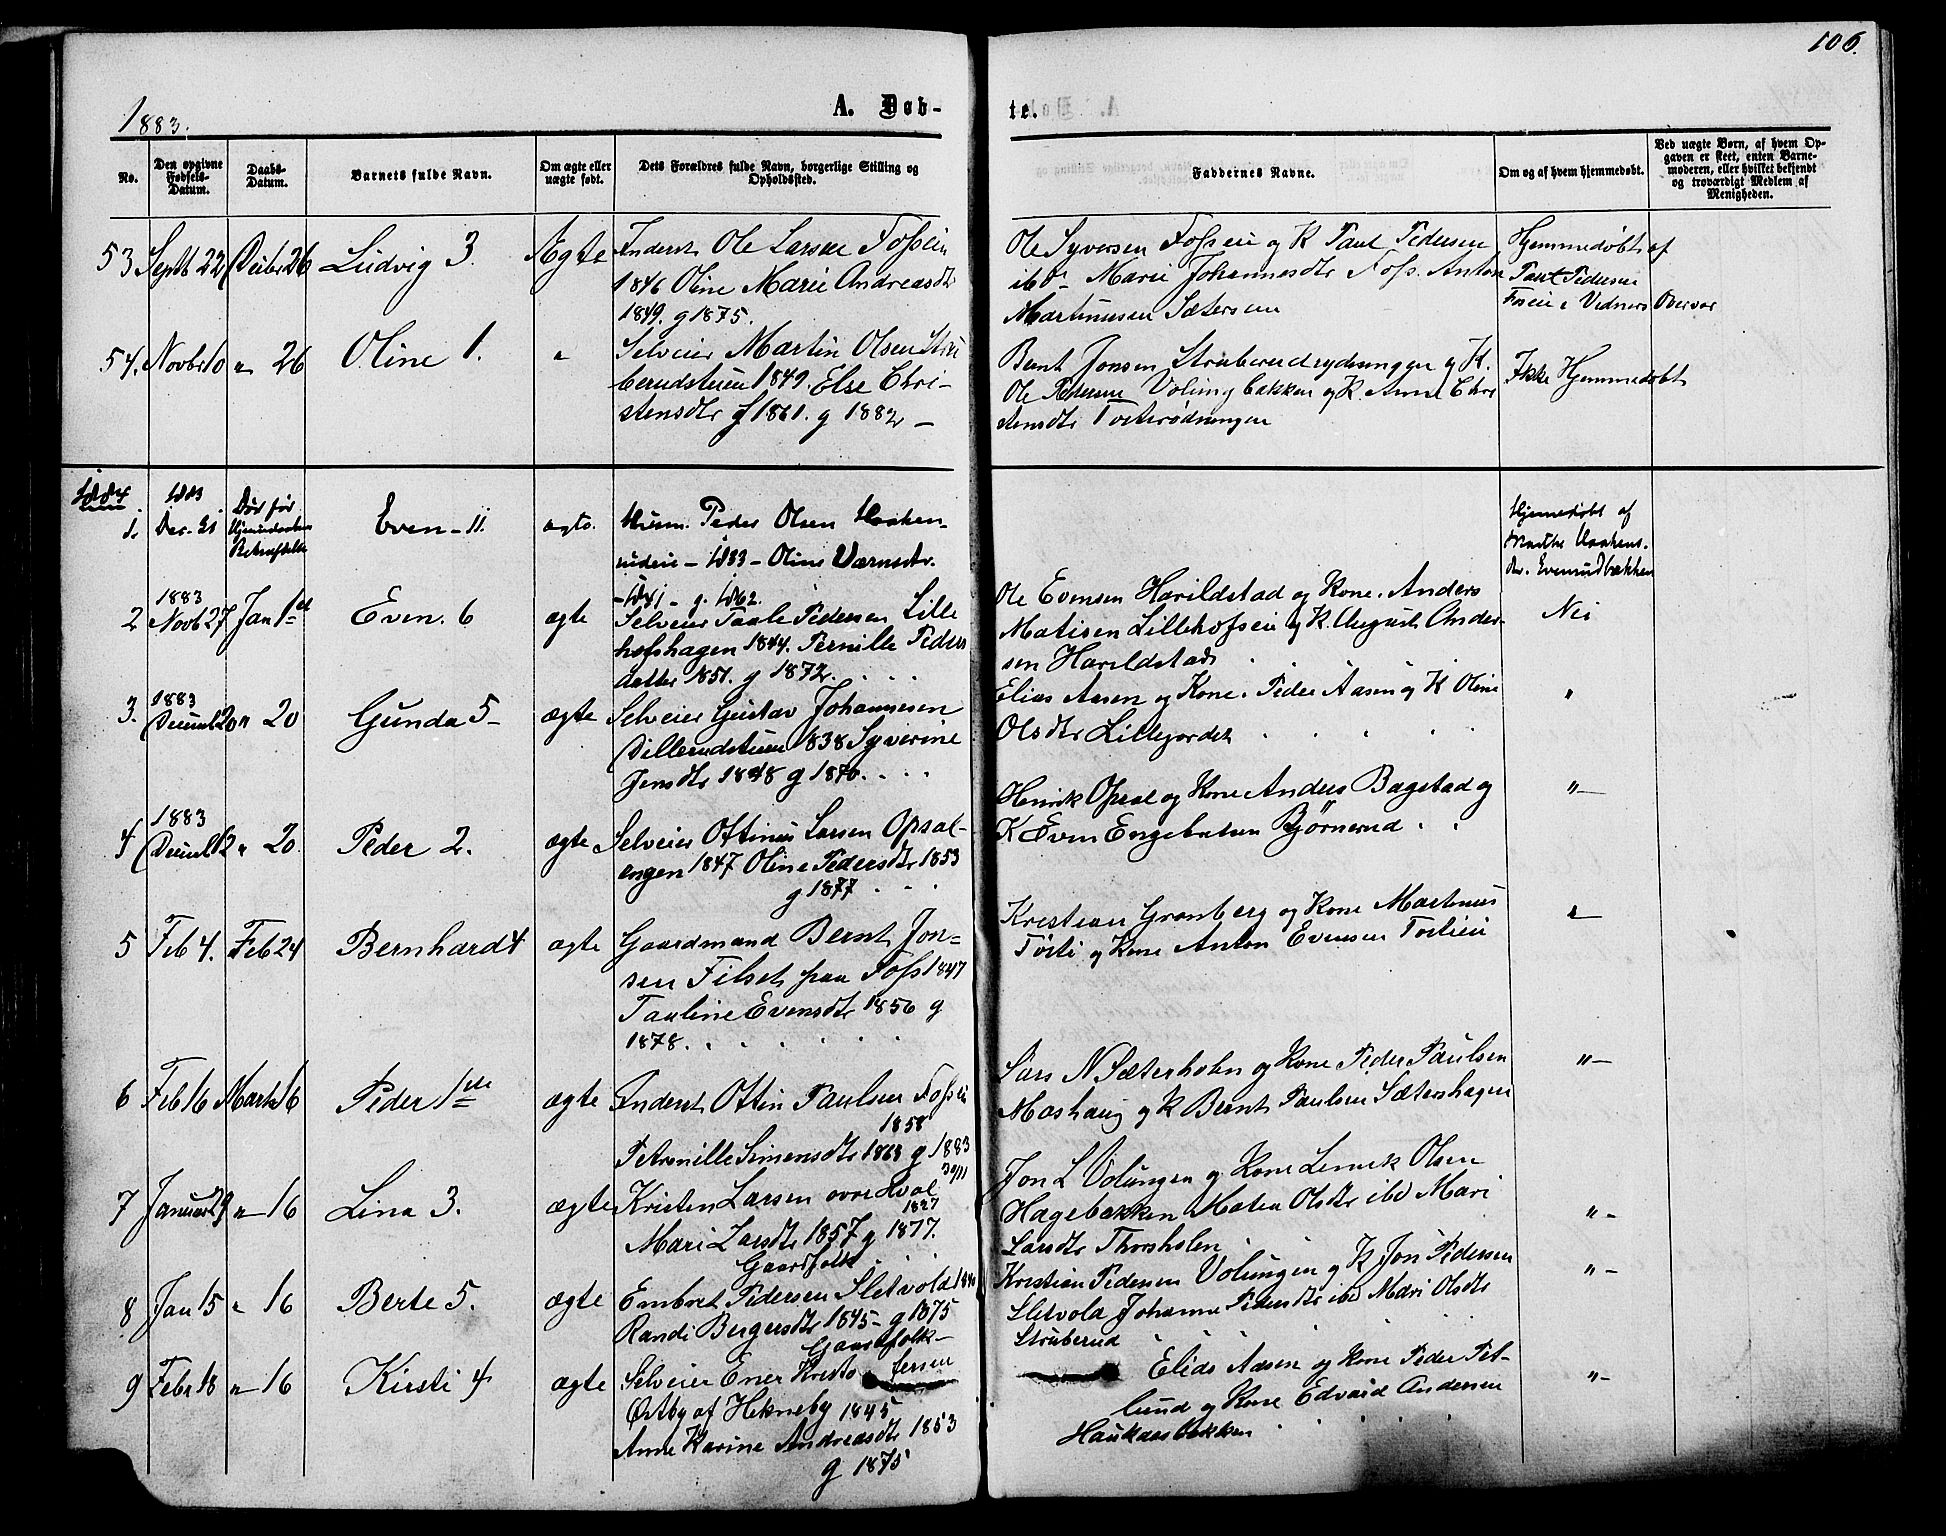 106.
1883.
A. Døb-
te.
No.
Den opgivne Fødsels-Datum.
Daabs-Datum.
Barnets fulde Navn.
Om ægte eller uægte født.
Dets Forældres fulde Navn, borgerlige Stilling og Opholdssted.
Faddernes Navne.
Om og af hvem hjemmedøbt.
Ved uægte Børn, af hvem Opgaven er skeet, enten Barnemoderen, eller hvilket bekjendt og troværdigt Medlem af Menigheden.
53 Septb 22 Decbr 26 Ludvig 3. Ægte Inderst Ole Larsen Fosseie
1846 Oline Marie Andreasdtr
1849. g 1875.
Ole Syversen Fosseie og K Paul Pedersen
ibd Marie Johannesdtr Foss. Anton
Martinusen Sætersen
Hjemmedøbt af
Paul Pedersen
Foseie i Vidners Overvær
54. Novbr 10 " 26 Oline 1. "
Selveier Martin Olsen Stru
berudstuen 1849. Else Chri-
stensdtr f 1861. g 1882 -
Bernt Jonsen Struberudrydningen og K.
Ole Pedersen Volungbakken og K. Anne Chri
stensdtr
Ikke Hjemmedøbt
1884
1. 1883 Dec. 21 Død før Hjemmedaabens Bekræftelse Even - 11. ægte.
Husm. Peder Olsen Haaken-
- 1833 - Oline
- 1841 - g. 1862.
Hjemmedøbt af
Marthe Haakens-
dr. Evenrudbakken
2 1883 Novb 27 Jan 1ste Even. 6 ægte
Selveier Paale Pedersen Lille
hofshagen 1844. Pernille Peders
datter 1851. g 1872.
Ole Evensen Harildstad og Kone. Anders
Matisen Lillehofseie og K. August Ander-
sen Harildstad
Nei
3. 1883 Decembr 20 " 20 Gunda 5 - ægte
Selveier Gustav Johannesen
Dillerudstuen 1838 Syverine
Jensdtr 1848 g 1870.
Elias Aasen og Kone. Peder Aasen og K Oline
Olsdtr Lillegordet
"
4 1883 Decembr 12 " 20. Peder 2. ægte
Selveier Ottinus Larsen Opsal-
engen 1847 Oline Pedersdtr 1853
g 1877
Henrik Opsal og Kone Anders Bagstad og
K Even Engebretsen Bjørnerud
" -
5 Feb 4. Feb 24 Bernhard 4 ægte
Gaardmand Bernt Jon-
sen Filset paa Foss 1847
Pauline Evensdtr 1856 g
1878.
Kristian Grønberg og Kone Martinus
Torti og Kone Anton Evensen
" -
6 Feb 16 Marts 16 Peder 1ste ægte
Inderst Ottin Paulsen Fosseie
1858
Petronille Simensdtr 1863 g 1883
30/11
Lars N Sæterholen og Kone Peder Paulsen
Moshaug og K Bernt Paulsen Sætershagen
" -
7 Januar 29 " 16 Lina 3. ægte
Kristen Larsen øvre Hval
1827
Mari Larsdtr 1857 g 1877.
Gaardfolk
Jon L Volungen og Kone Lensek Olsen
Hagebakken Matea Olsdtr ibd Mari
Larsdtr Thorsholen
" -
8 Jan 15 " 16 Berte 5. ægte
Embret Pedersen Sletvold 1840
Randi Bergersdtr 1845 - g 1875
Gaardfolk -
Kristian Pedersen Volungen og K Jon Pedersen
Sletvold Johanne Pedersdtr ibd Mari Olsdtr
Struberud
" -
9 Febr 18 " 16 Kirsti 4 ægte
Selveier Ener Kristo fersen
Østby af Hekneby 1845
Anne Karine Andreasdtr 1853
g 1875
Elias Aasen og Kone Peder Pet-
lund og Kone Edvard Andersen
Haukaasbakken
" -